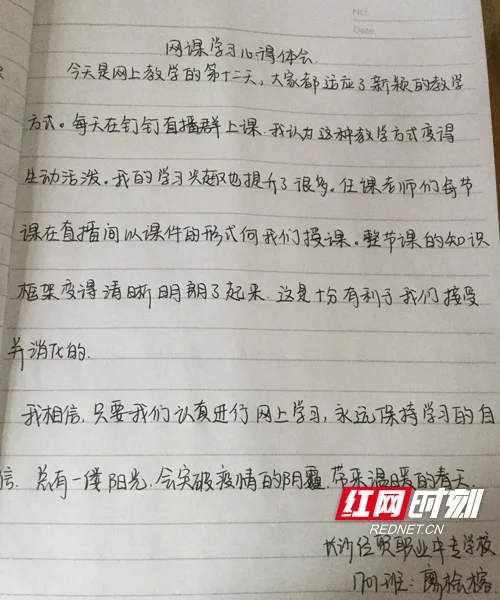 NO.
Date.
网课学习心得体会
今天是网上教学的第十二天,大家都适应了新颖的教学
方式。每天在钉钉直播群上课.我认为这种教学方式变得
生动活泼。我的学习兴趣也提升了很多。任课老师们每节
课在直播间以课件的形式向我们授课。整节课的知识
框架变得清晰明朗了起来.这是十分有利于我们接受
并消化的.
我相信.只要我们认真进行网上学习,永远保持学习的自
信.总有一缕阳光.会突破疫情的阴霾.带来温暖的春天.
红网时刻
REDNET.CN
长沙经贸职业中专学校
1701班:廖桧榕